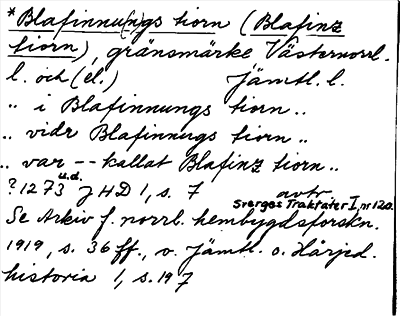 *Blafinnu(n)gs tiorn (Blafinz
tiorn), gränsmärke Västernorrl.
l. och (el.) Jämtl. l.
„ i Blafinnungs tiorn „
„ vidr Blafinnugs tiorn „
„ var -- kallat Blafinz tiorn „
u.d.
? 1273 JHD 1, s. 7 avtr.
Sverges Traktater I, nr 120.
Se Arkiv f. norrl. hembygdsforskn.
1919, s. 36 ff., o. Jämtl. o. Härjed.
historia 1, s. 197